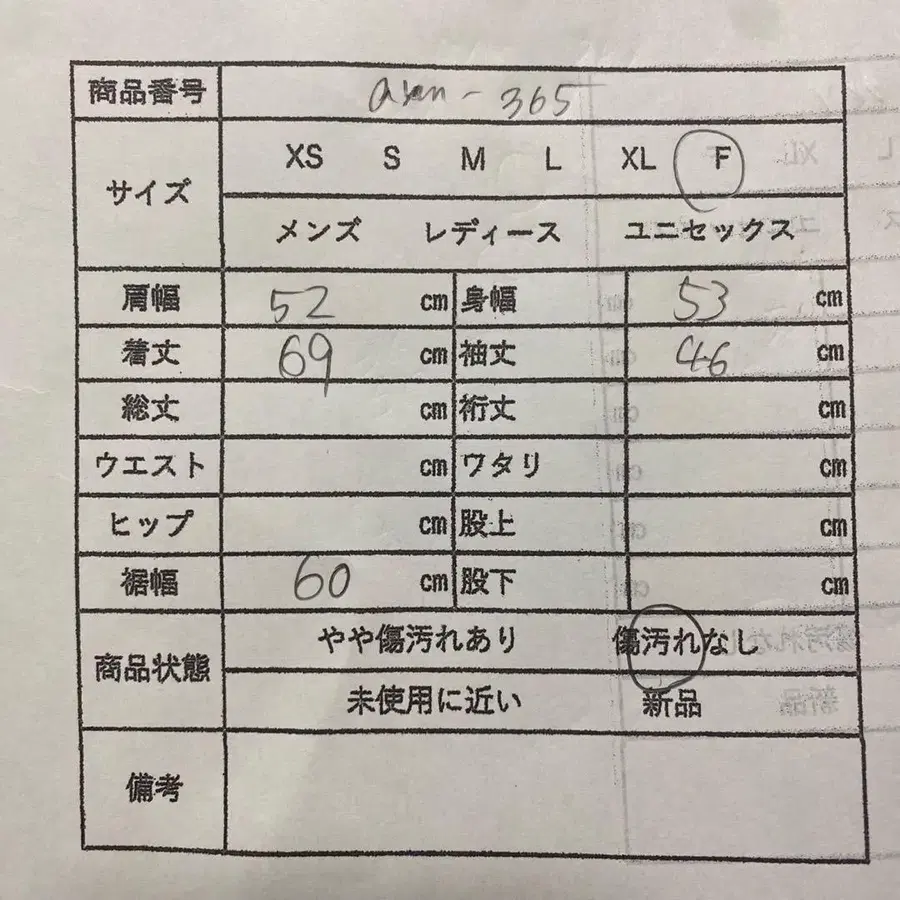 商品番号 - 365
サイズ XS S M L XL F
メンズ レディース ユニセックス
肩幅 52 cm 身幅 53 cm
着丈 69 cm 袖丈 46 cm
総丈 cm 裄丈 cm
ウエスト cm ワタリ cm
ヒップ cm 股上 cm
裾幅 60 cm 股下 cm
商品状態 やや傷汚れあり 傷汚れなし
未使用に近い 新品
備考